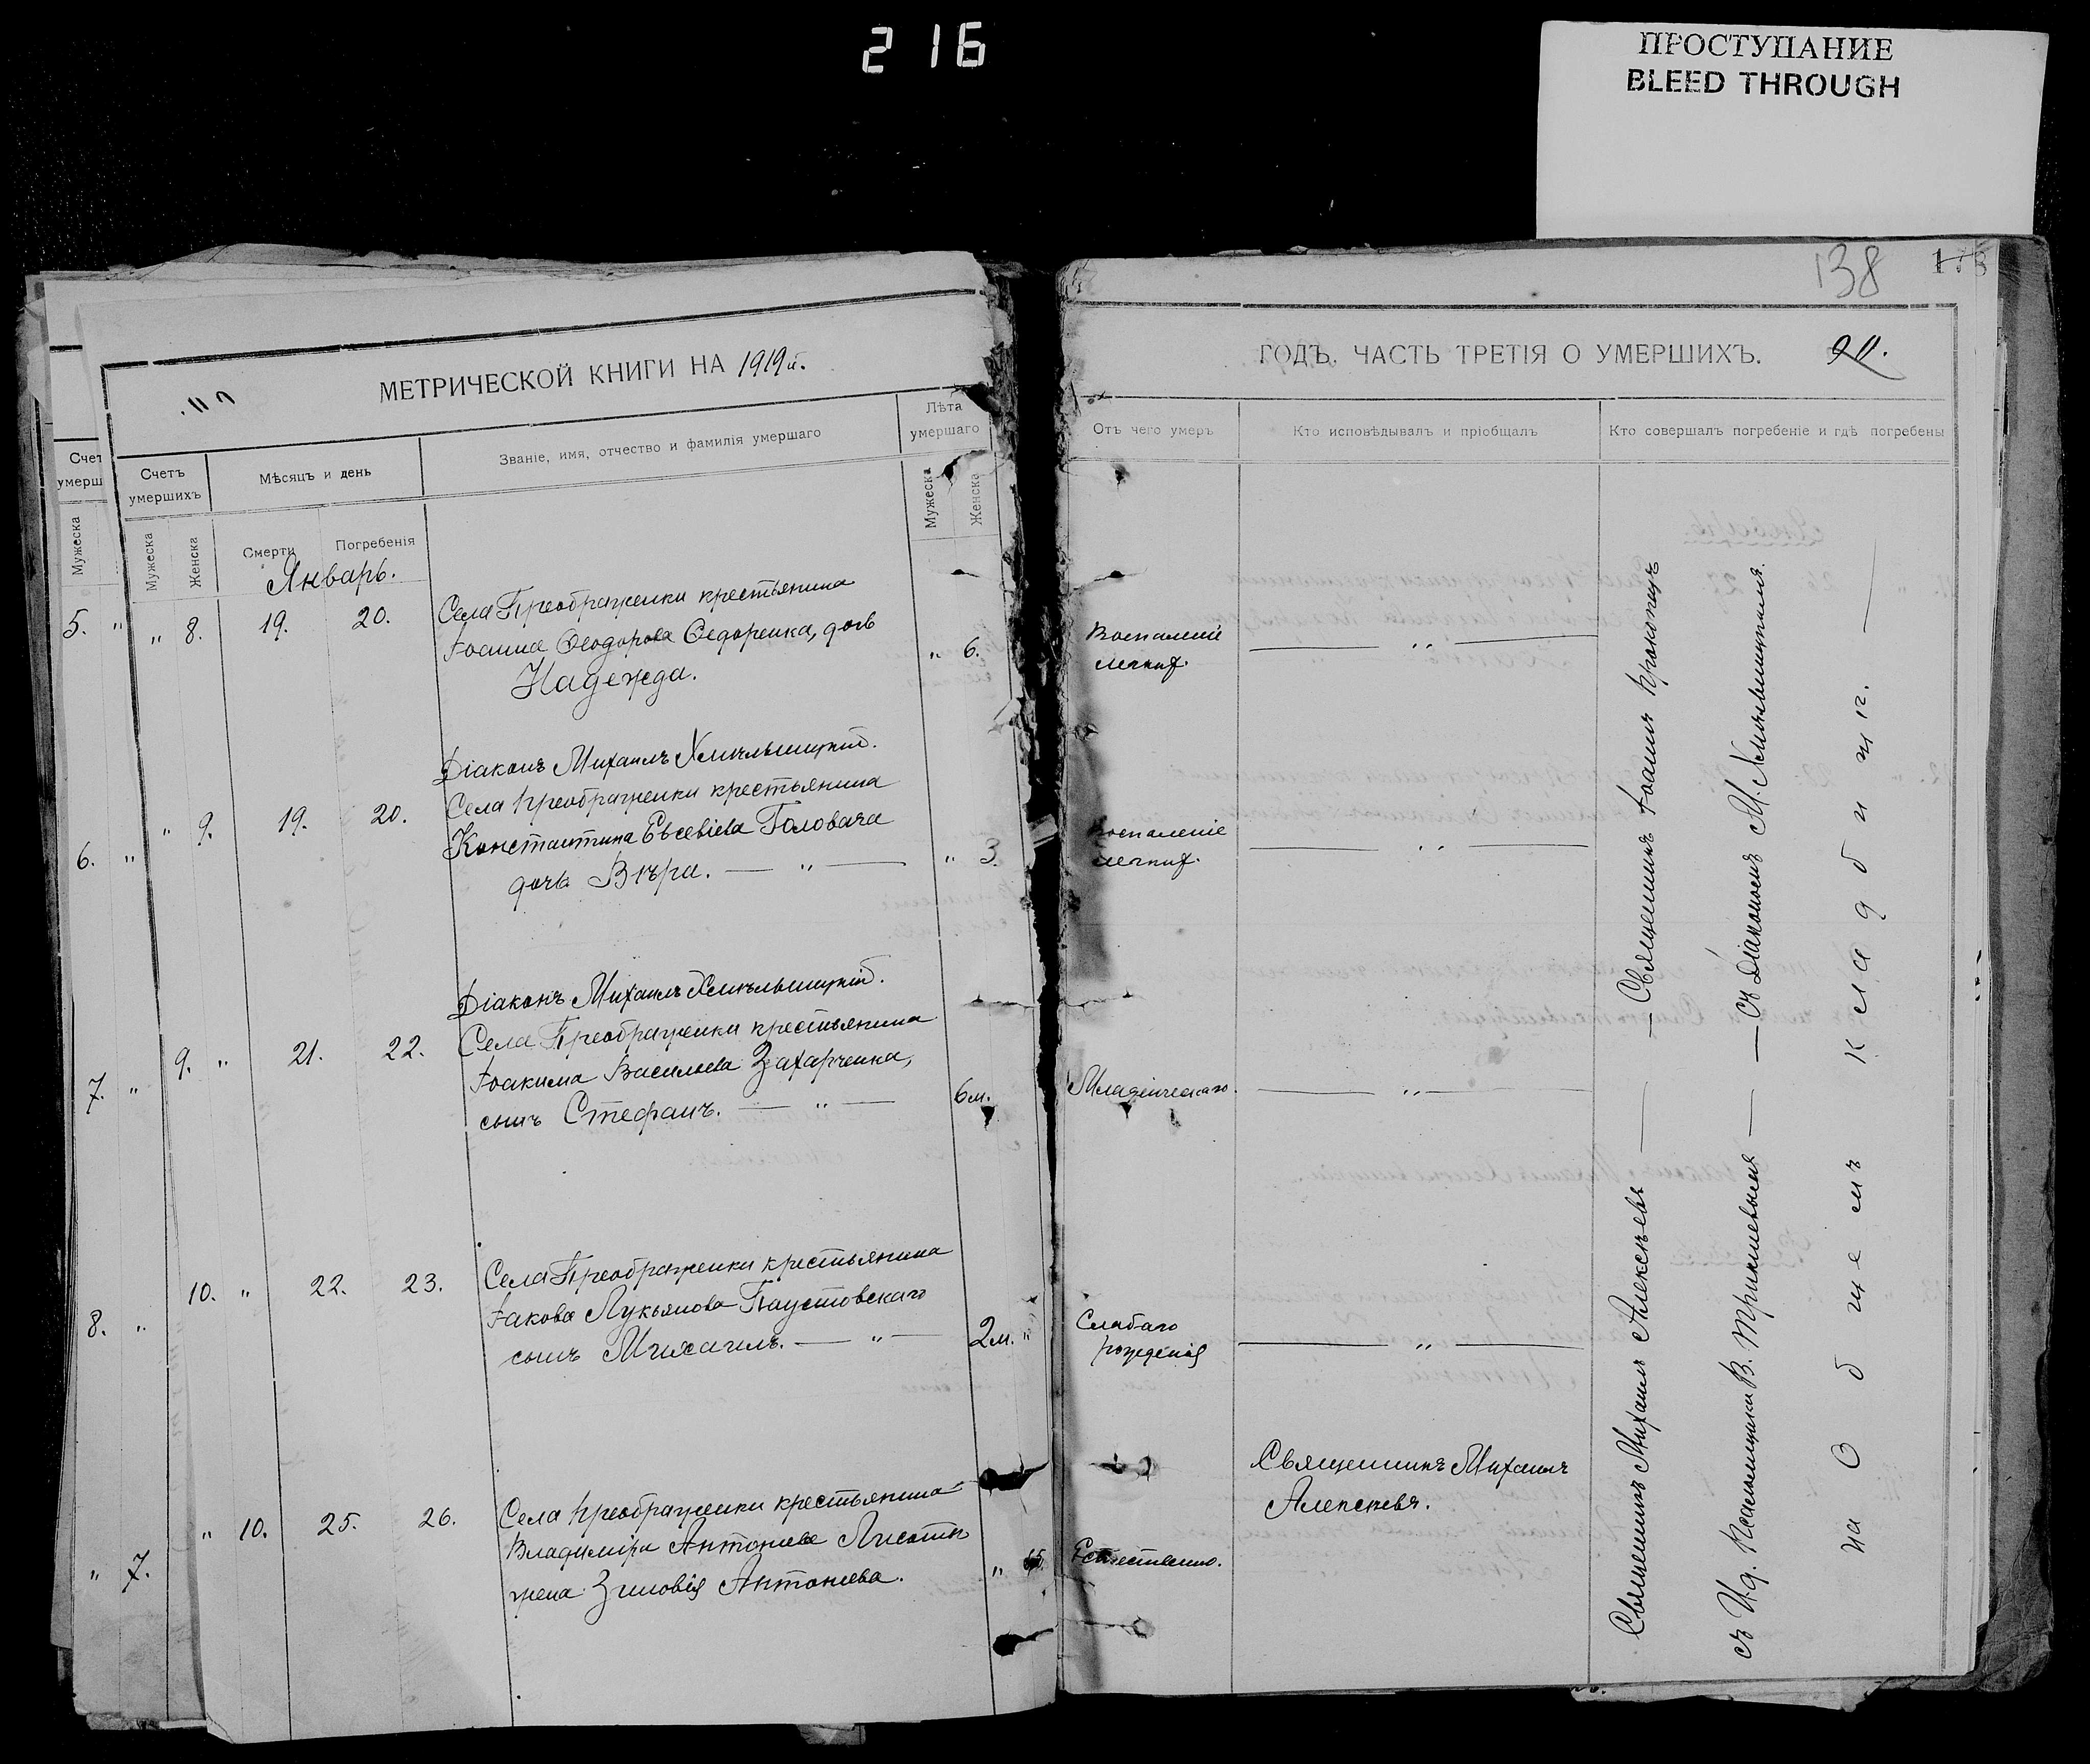 216
ПРОСТУПАНИЕ
BLEED THROUGH
МЕТРИЧЕСКОЙ КНИГИ НА 1919й.
Счет
умерш
Мужеска
Счетъ
умершихъ
Мѣсяцъ и день
Званіе, имя, отчество и фамилія умершаго
Лѣта
умершаго
Мужеска
Женска
Смерти
Погребенія
Мужеска
Женска
Январь.
5. "
" 8. 19. 20.
Села Преображенки крестьянина
Іоанна Ѳеодорова Ѳедоренка, дочь
Надежда.
" 6.
Діаконъ Михаилъ Хмѣльницкій.
6. "
" 9. 19. 20.
Села Преображенки крестьянина
Константина Евсевіева Головача
дочь Вѣра. — " —
" 3.
Діаконъ Михаилъ Хмѣльницкій.
7. "
9. " 21. 22.
Села Преображенки крестьянина
Іоакима Васильева Захарченка,
сынъ Стефанъ. — " —
6м.
8. "
10. " 22. 23.
Села Преображенки крестьянина
Іакова Лукьянова Паустовскаго
сынъ Михаилъ. — " —
2м. "
" 7.
" 10. 25. 26.
Села Преображенки крестьянина
Владиміра Антоніева
жена Зиновія Антоніева.
138
ГОДЪ. ЧАСТЬ ТРЕТІЯ О УМЕРШИХЪ.
Отъ чего умеръ
Кто исповѣдывалъ и пріобщалъ
Кто совершалъ погребеніе и гдѣ погребены
Воспаленіе
легких.
— " —
Воспаленіе
легких.
— " —
Младенческаго.
— " —
Слабаго
рожденія
— " —
Священникъ Михаилъ
Алексѣевъ.
Естественно.
Священникъ Михаилъ Алексѣевъ — — Священникъ Іоаннъ Крокопцъ
съ И.д. Псаломщика В. — — съ Діакономъ М. Хмѣльницкимъ.
на Общемъ кладбищѣ. —